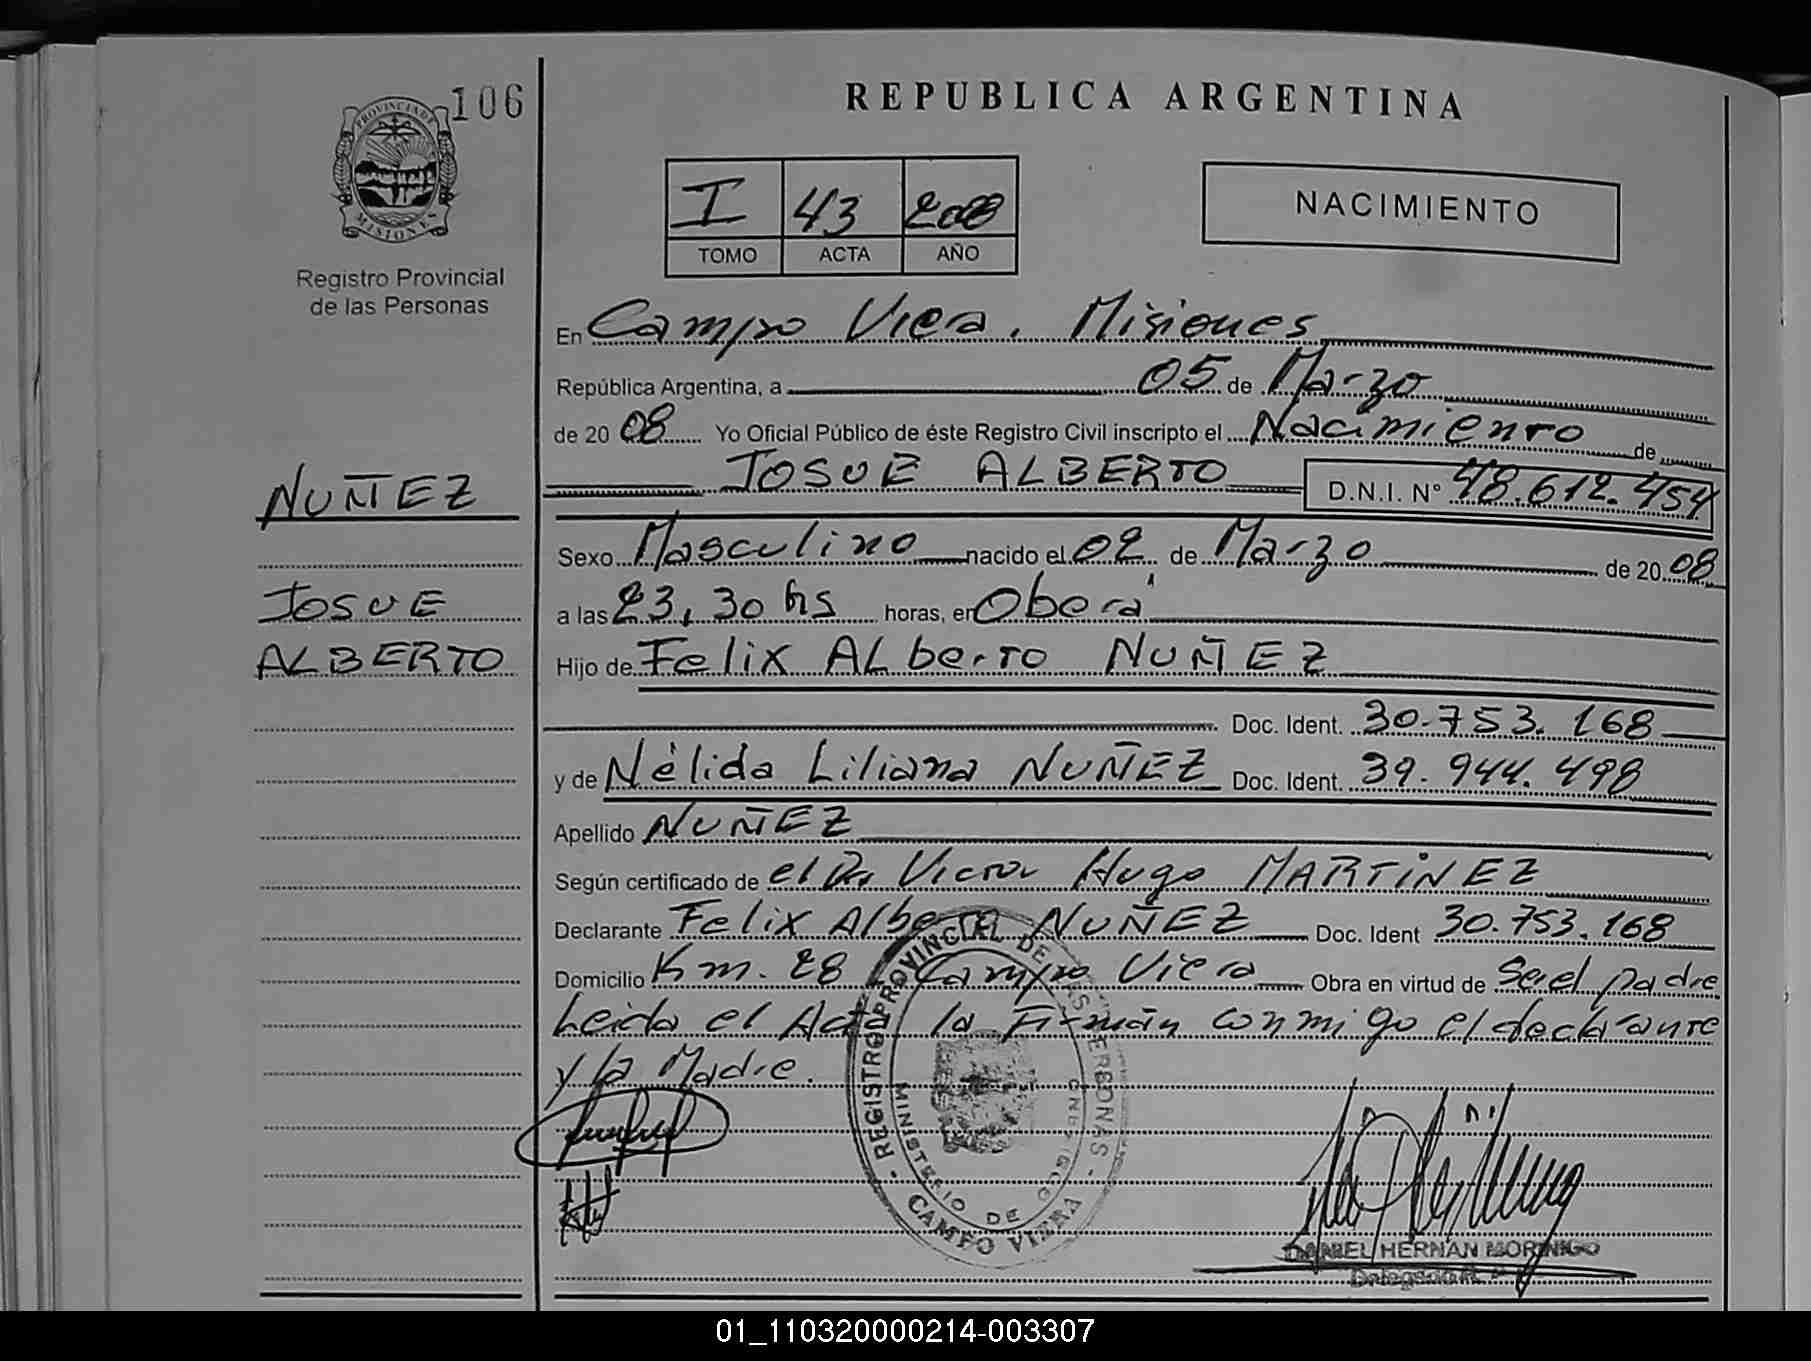 106
REPUBLICA ARGENTINA
PROVINCIA DE
MISIONES
I 43 2008
TOMO ACTA AÑO
NACIMIENTO
Registro Provincial
de las Personas
En Campo Viera. Misiones
República Argentina, a 05 de Marzo
de 20 08 Yo Oficial Público de éste Registro Civil inscripto el Nacimiento de
JOSUE ALBERTO D.N.I. N° 48.612.454
NUÑEZ
Sexo Masculino nacido el 02 de Marzo de 20 08
JOSUE
a las 23,30 hs horas, en Oberá
ALBERTO
Hijo de Felix ALberto NUÑEZ
Doc. Ident. 30.753.168
y de Nélida Liliana NUÑEZ Doc. Ident. 39.944.498
Apellido NUÑEZ
Según certificado de el Dr. Victor Hugo MARTINEZ
Declarante Felix Alberto NUÑEZ Doc. Ident 30.753.168
Domicilio Km. 28 Campo Viera Obra en virtud de Ser el padre
Leida el Acta la Firmán conmigo el declarante
y la Madre.
REGISTRO PROVINCIAL DE LAS PERSONAS
MINISTERIO DE
CAMPO VIERA
DANIEL HERNAN MORINIGO
01_110320000214-003307